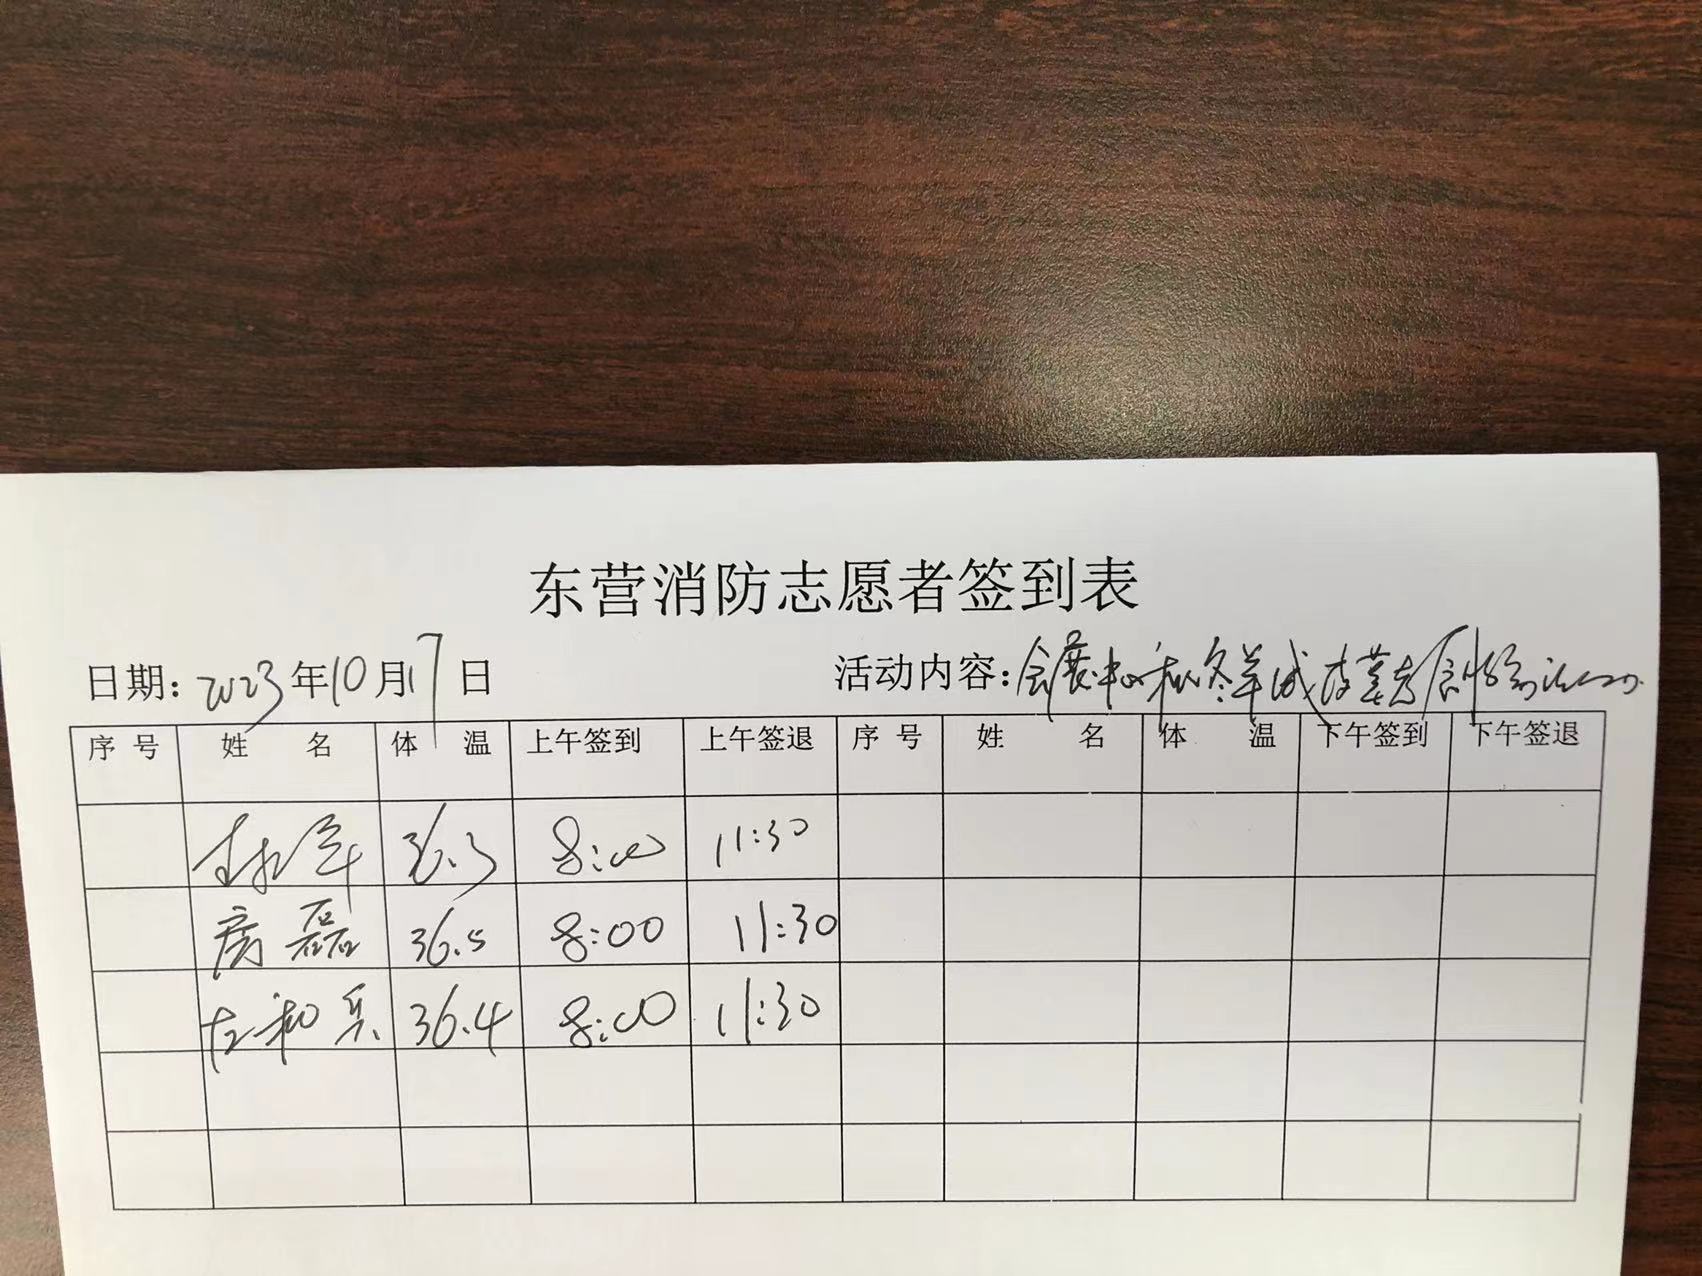 东营消防志愿者签到表
日期：2023年10月17日 活动内容：会展中心秋冬羊
序号 姓名 体温 上午签到 上午签退 序号 姓名 体温 下午签到 下午签退
36.3 8:00 11:30
房磊 36.5 8:00 11:30
左和兵 36.4 8:00 11:30